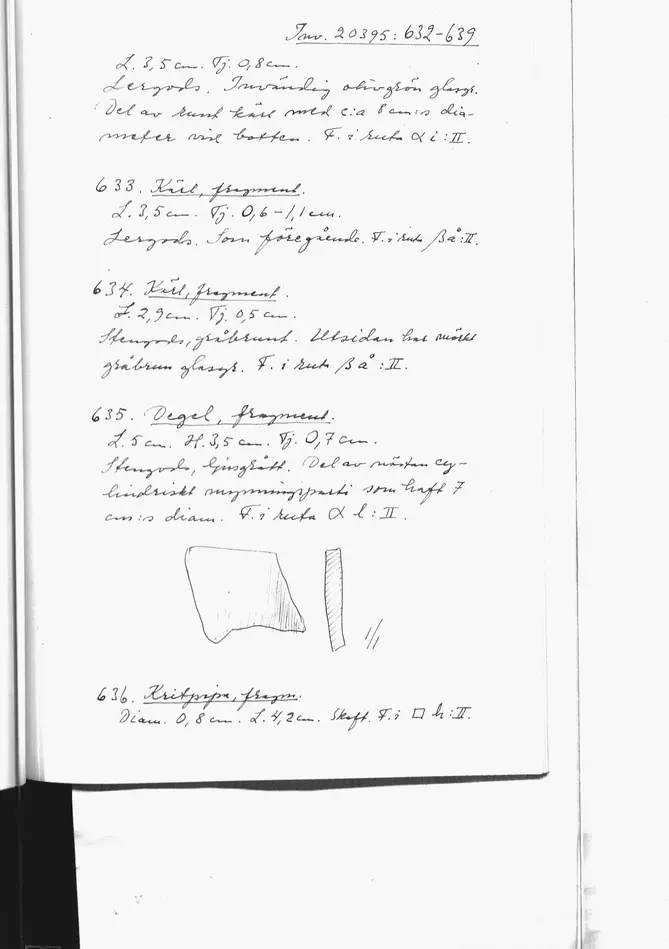 Inv. 20395: 632-639
L. 3,5 cm. Tj. 0,8 cm.
Lergods. Invändig olivgrön glasyr.
Del av runt kärl med c:a 8 cm:s dia-
meter vid botten. F. i ruta α i : II.
633. Kärl, fragment.
L. 3,5 cm. Tj. 0,6-1,1 cm.
Lergods. Som föregående. F. i ruta β å : II.
634. Kärl, fragment.
L. 2,9 cm. Tj. 0,5 cm.
Stengods, gråbrunt. Utsidan har mörkt
gråbrun glasyr. F. i ruta β å : II.
635. Degel, fragment.
L. 5 cm. H. 3,5 cm. Tj. 0,7 cm.
Stengods, ljusgrått. Del av nästan cy-
lindriskt mynningsparti som haft 7
cm:s diam. F. i ruta α l : II.
1/1
636. Kritpipa, fragm.
Diam. 0,8 cm. L. 4,2 cm. Skaft. F. i □ h : II.